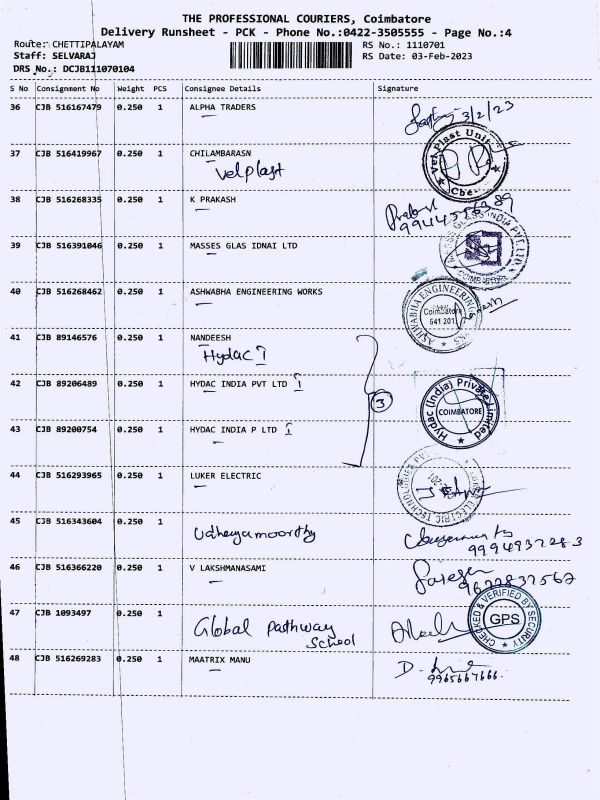 THE PROFESSIONAL COURIERS, Coimbatore
Delivery Runsheet - PCK - Phone No.:0422-3505555 - Page No.:4
Route: CHETTIPALAYAM RS No.: 1110701
Staff: SELVARAJ RS Date: 03-Feb-2023
DRS No.: DCJB111070104
S No Consignment No Weight PCS Consignee Details Signature
36 CJB 516167479 0.250 1 ALPHA TRADERS 3/2/23
37 CJB 516419967 0.250 1 CHILAMBARASN
Velplast Vel Plast Unit
38 CJB 516268335 0.250 1 K PRAKASH Prakash
39 CJB 516391046 0.250 1 MASSES GLAS IDNAI LTD
COIMBATORE
40 CJB 516268462 0.250 1 ASHWABHA ENGINEERING WORKS ASHWABHA ENGINEERING
Coimbatore
641 201
41 CJB 89146576 0.250 1 NANDEESH
Hydac
42 CJB 89206489 0.250 1 HYDAC INDIA PVT LTD Hydac (India) Private Limited
3 COIMBATORE
43 CJB 89200754 0.250 1 HYDAC INDIA P LTD
44 CJB 516293965 0.250 1 LUKER ELECTRIC ELECTRIC TECHNOLOGIES
45 CJB 516343604 0.250 1
Udheyamoorthy
9994937283
46 CJB 516366220 0.250 1 V LAKSHMANASAMI
9677837567
47 CJB 1093497 0.250 1 CHECKED & VERIFIED BY SECURITY
Global Pathway GPS
School
48 CJB 516269283 0.250 1 MAATRIX MANU
9965667666.